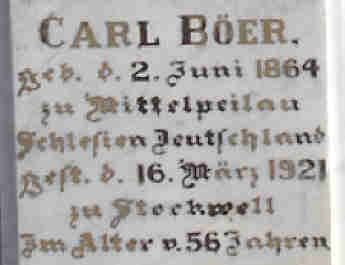 CARL BÖER.
Geb. d. 2. Juni 1864
zu Mittelpeilau
Schlesien Deutschland
Gest. d. 16. März 1921
zu Stockwell
Im Alter v. 56 Jahren